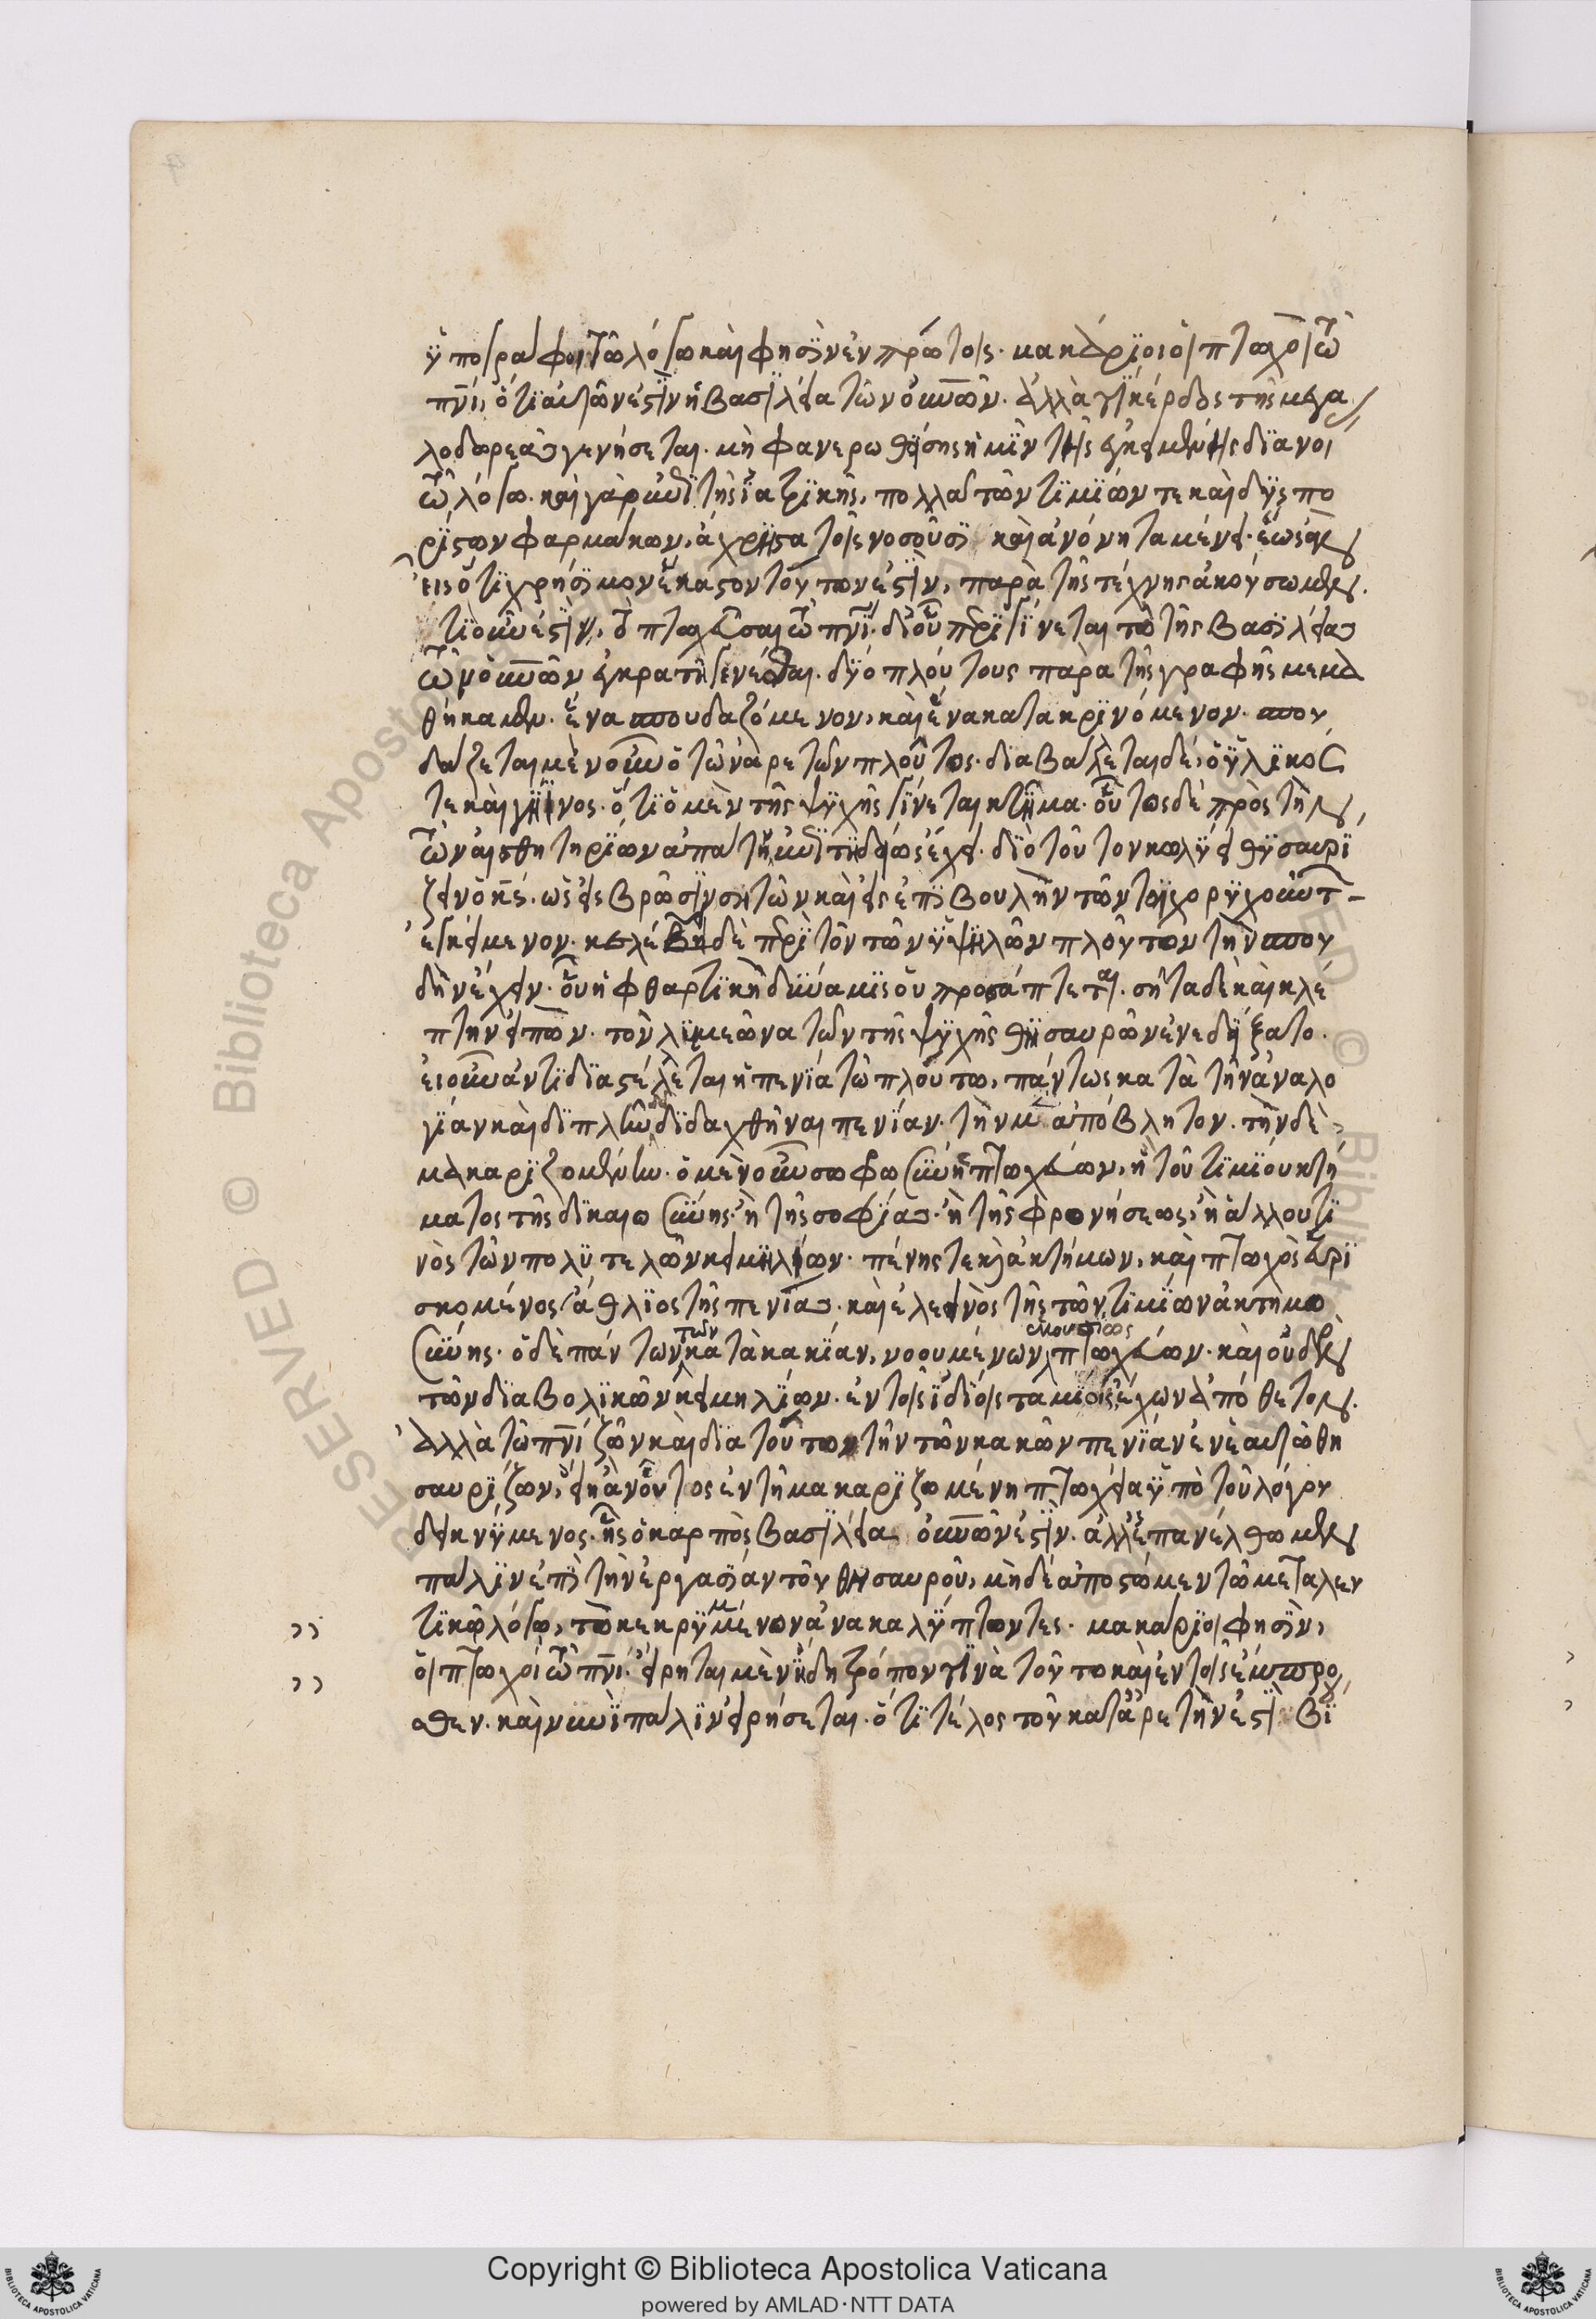 ὑπογράφει τῶ λόγω καὶ φησὶν ἐν πρώτοις· μακάριοι οἱ πτωχοὶ τῶ
πνι, ὅτι αὐτῶν ἐστὶν ἡ βασιλεία τῶν οὐνῶν. ἀλλὰ τί κέρδος τῆς μεγα
λοδωρεᾶς γενήσεται. μὴ φανερωθείσης ἡμῖν τῆς ἐγκειμένης διανοί
τῶ λόγω. καὶ γὰρ ἐπὶ τῆς ἰατρικῆς, πολλὰ τῶν τιμίων τε καὶ δυσπο
ρίστων φαρμάκων, ἄχρηστα τοῖς νοσοῦσι καὶ ἀνόνητα μένει· ἕως ἂν
εἰς ὅτι χρήσιμον ἕκαστον τούτων ἐστὶν, παρὰ τῆς τέχνης ἀκούσωμεν.
τί οὖν ἐστὶν, τὸ πτωχεῦσαι τῶ πνι· δι' οὗ περιγίνεται τὸ τῆς βασιλείας
τῶν οὐνῶν ἐγκρατῆ γενέσθαι. δύο πλούτους παρὰ τῆς γραφῆς μεμα
θήκαμεν. ἕνα σπουδαζόμενον, καὶ ἕνα κατακρινόμενον. σπου
δάζεται μὲν οὖν ὁ τῶν ἀρετῶν πλοῦτος. διαβάλλεται δὲ, ὁ ὑλικός
τε καὶ γήϊνος. ὅτι ὁ μὲν τῆς ψυχῆς γίνεται κτῆμα. οὗτος δὲ πρὸς τὴν
τῶν αἰσθητηρίων ἀπάτην ἐπιτηδείως ἔχει. διὸ τοῦτον κωλύει θησαυρί
ζειν ὁ κς. ὡς εἰς βρῶσιν σητῶν καὶ εἰς ἐπιβουλὴν τῶν τοιχορυχούντ
ἐκκείμενον. κελεύει δὲ περὶ τὸν τῶν ὑψηλῶν πλοῦτον τὴν σπου
δὴν ἔχειν. οὗ ἡ φθαρτικὴ δύναμις οὐ προσάπτεται. σῆτα δὲ καὶ κλέ
πτην εἰπὼν. τὸν λυμεῶνα τῶν τῆς ψυχῆς θησαυρῶν ἐνεδείξατο.
εἰ οὖν ἀντιδιαστέλλεται ἡ πενία τῶ πλούτω, πάντως κατὰ τὴν ἀναλο
γίαν καὶ διπλῶ διδαχθῆναι πενίαν. τὴν μὲν ἀπόβλητον. τὴν δὲ
μακαριζομένην. ὁ μὲν οὖν σωφροσύνης πτωχεύων, ἢ τοῦ τιμίου κτή
ματος τῆς δικαιοσύνης. ἢ τῆς σοφίας. ἢ τῆς φρονήσεως, ἢ ἄλλου τι
νὸς τῶν πολυτελῶν κειμηλίων. πένης τε καὶ ἀκτήμων, καὶ πτωχὸς εὑρι
σκόμενος, ἄθλιος τῆς πενίας. καὶ ἐλεεινὸς τῆς τῶν τιμίων ἀκτημο
σύνης. ὁ δὲ πάντων τῶν κατὰ κακίαν, νοουμένων ἑκουσίως πτωχεύων. καὶ οὐδὲν
τῶν διαβολικῶν κειμηλίων. ἐν τοῖς ἰδίοις ταμίοις ἔχων ἀπόθετον.
ἀλλὰ τῶ πνι ζῶν καὶ διὰ τούτου τὴν τῶν κακῶν πενίαν ἑαυτῶ θη
σαυρίζων, εἴη ἂν οὗτος ἐν τῆ μακαριζομένη πτωχεία ὑπὸ τοῦ λόγου
δεικνύμενος. ἧς ὁ καρπὸς βασιλεία οὐνῶν ἐστὶν. ἀλλ' ἐπανέλθωμεν
πάλιν ἐπὶ τὴν ἐργασίαν τοῦ θησαυροῦ, μηδὲ ἀποστῶμεν τῶ μεταλλευ
τικῶ λόγω, τὸ κεκρυμμένον ἀνακαλύπτοντες. μακάριοι φησὶν,
οἱ πτωχοὶ τῶ πνι. εἴρηται μὲν ἤδη τρόπον τινὰ τοῦτο καὶ ἐν τοῖς ἔμπρο
σθεν. καὶ νυνὶ πάλιν εἰρήσεται. ὅτι τέλος τοῦ κατ' ἀρετὴν ἐστὶ βί